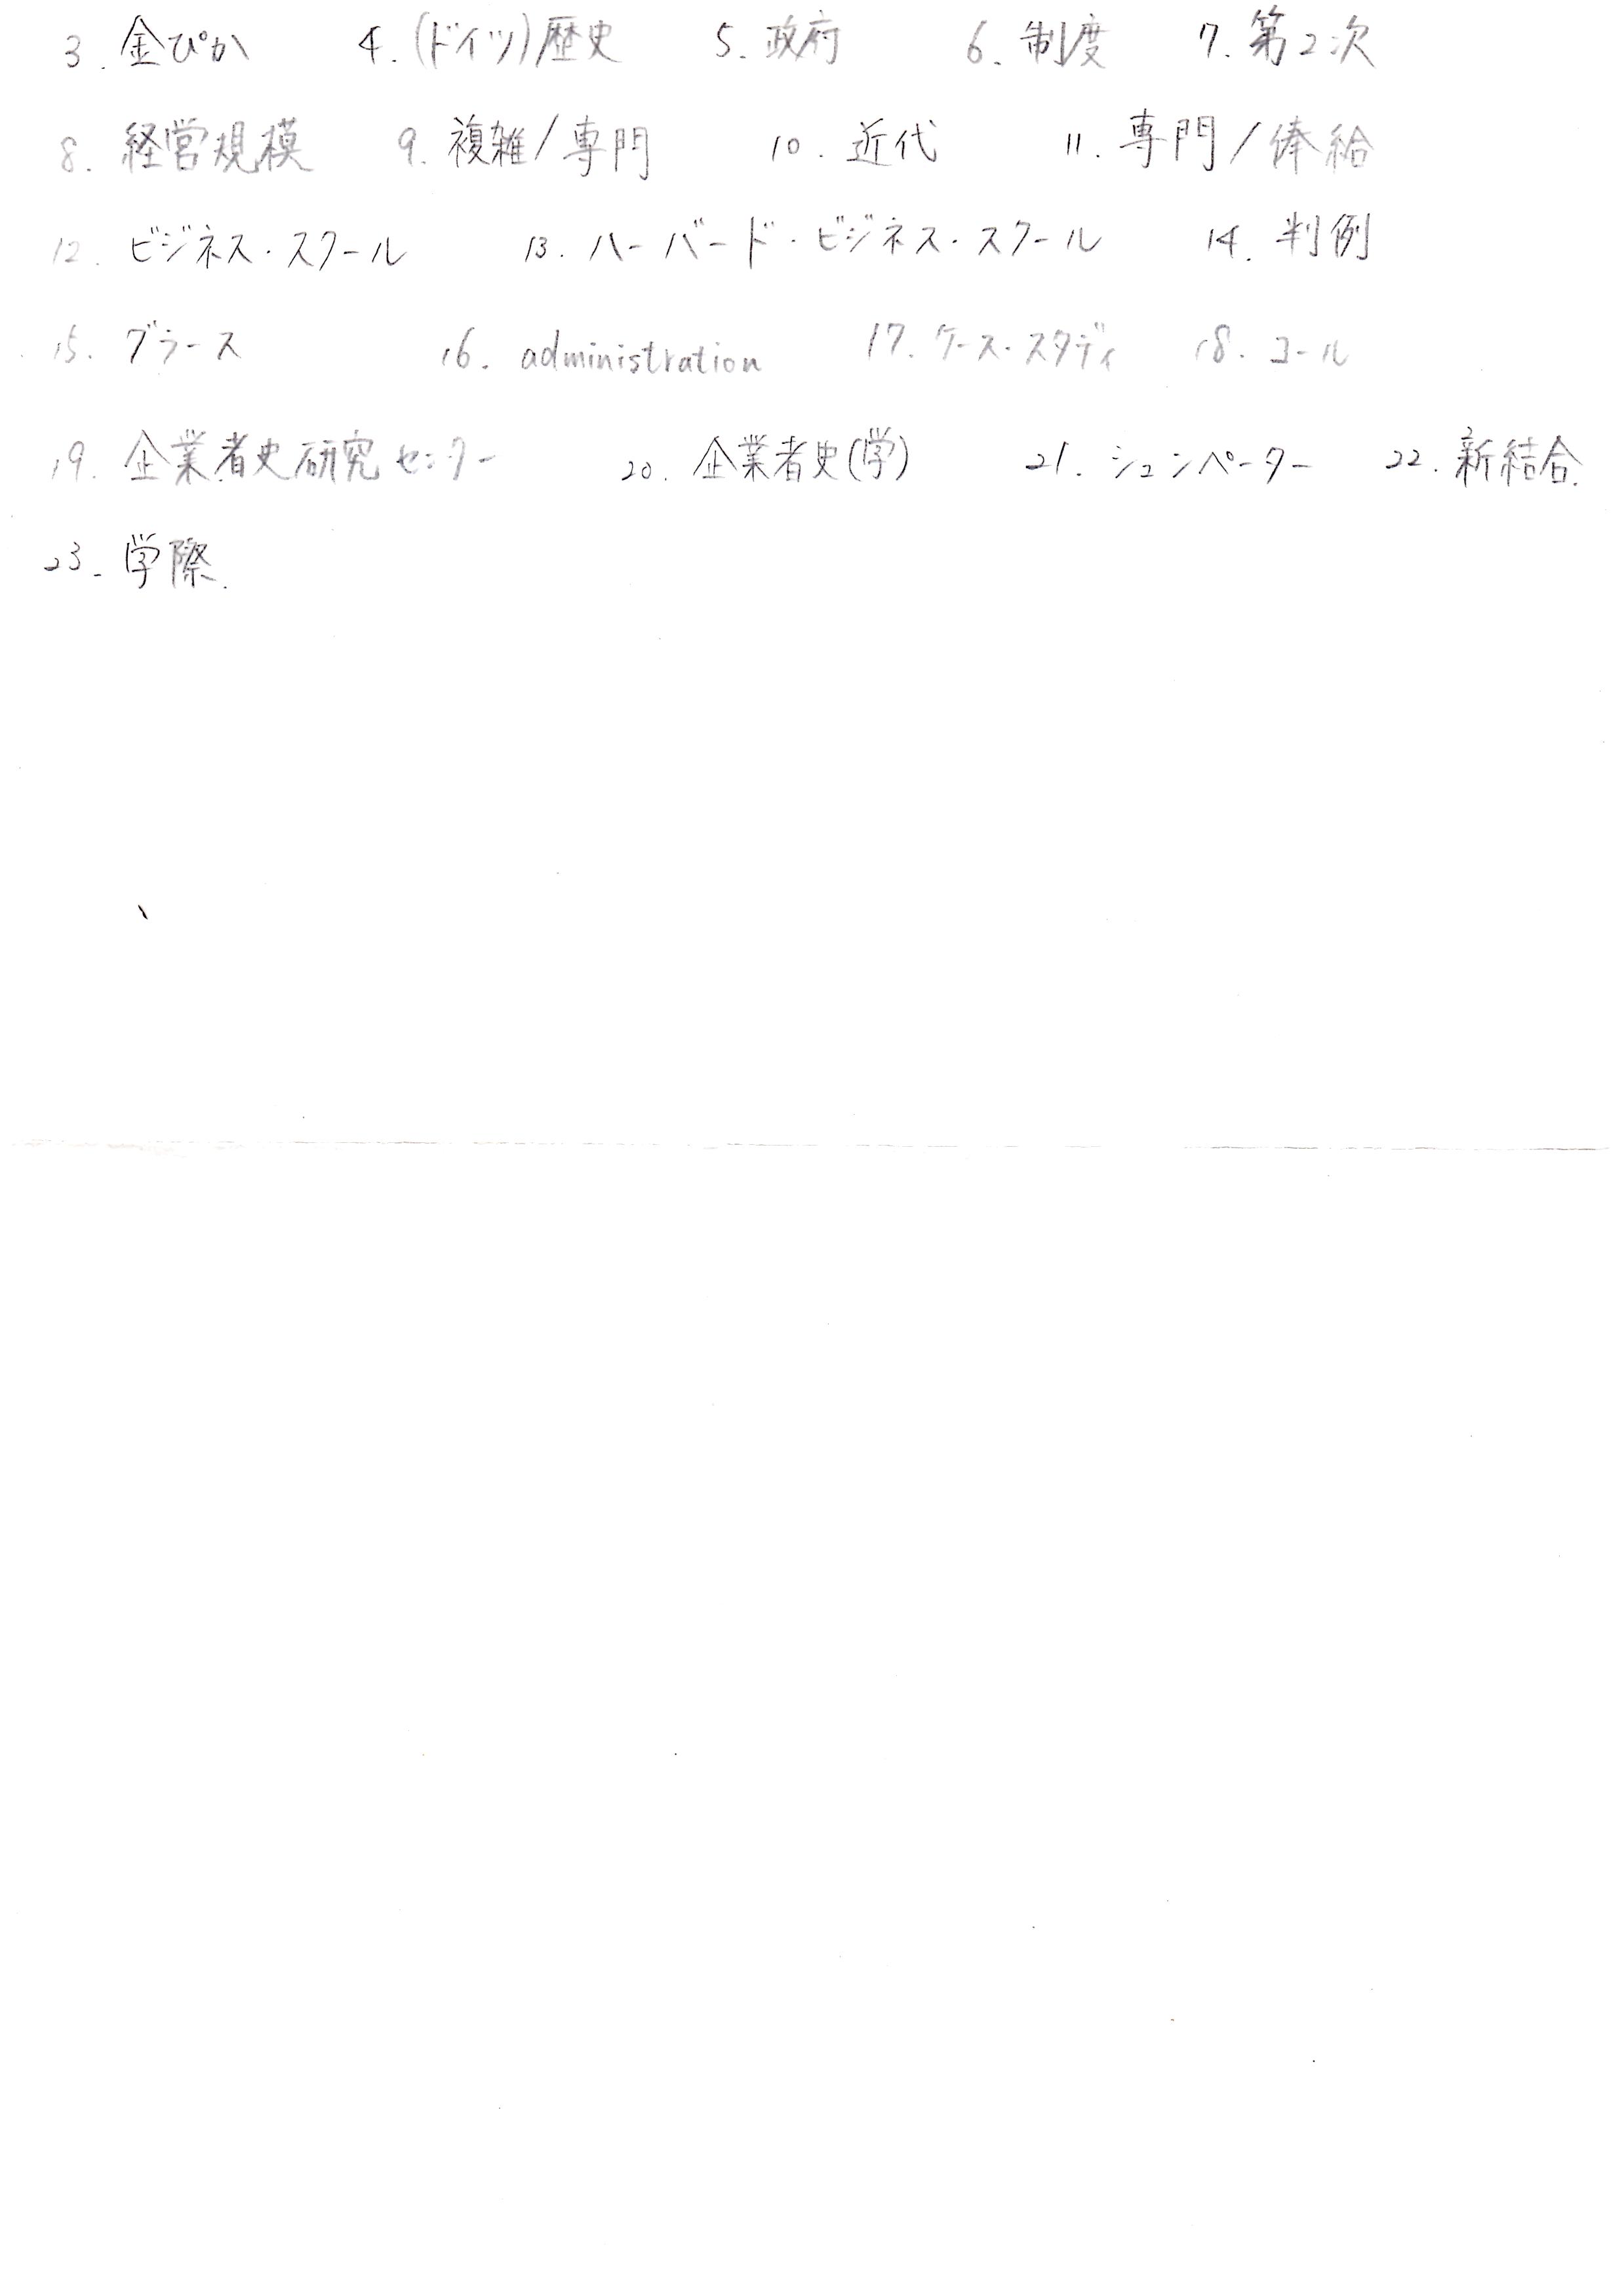 3. 金ぴか 4. (ドイツ)歴史 5. 政府 6. 制度 7. 第2次
8. 経営規模 9. 複雑/専門 10. 近代 11. 専門/俸給
12. ビジネス・スクール 13. ハーバード・ビジネス・スクール 14. 判例
15. グラース 16. administration 17. ケース・スタディ 18. コール
19. 企業者史研究センター 20. 企業者史(学) 21. シュンペーター 22. 新結合.
23. 学際.